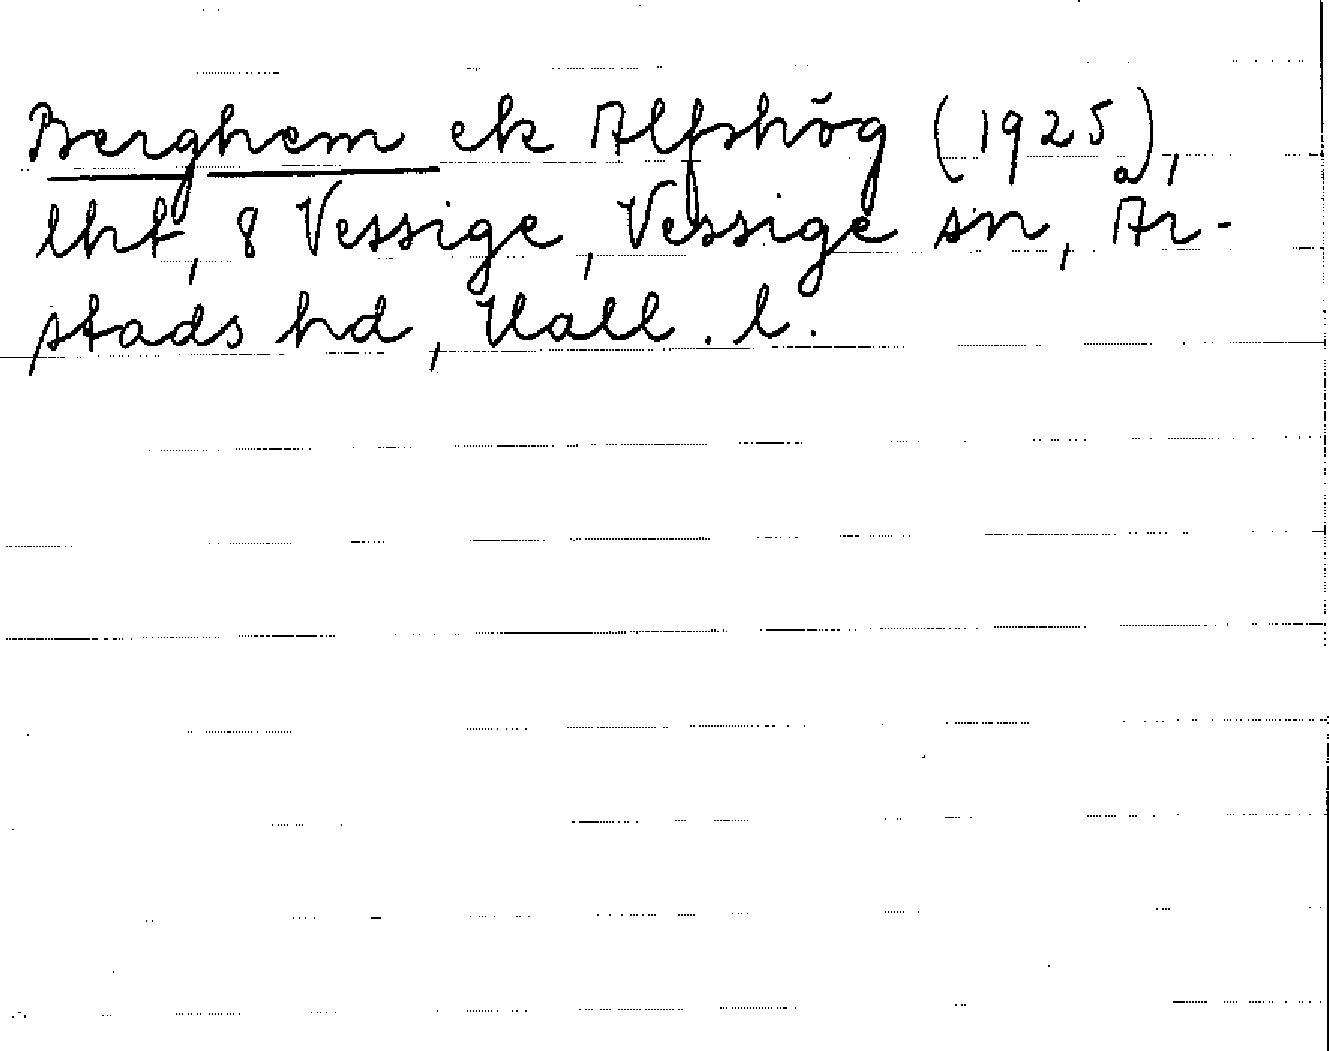 Berghem ek Alfshög (1925a),
lht, 8 Vessige, Vessige sn, År-
stads hd, Hall. l.